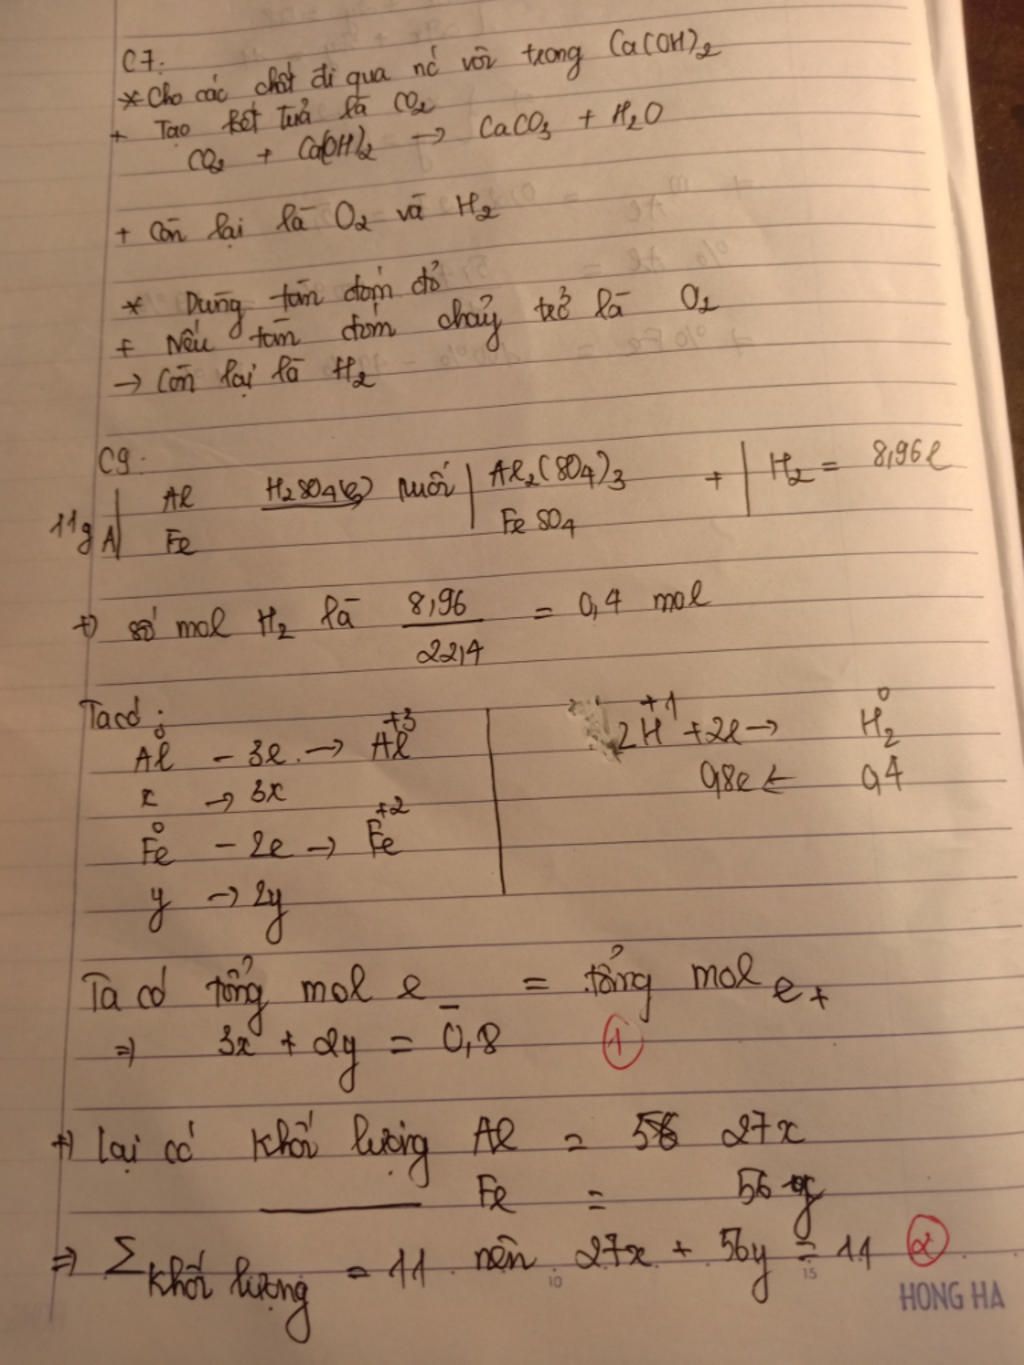 C7:
* Cho các chất đi qua nc vôi trong Ca(OH)2
+ Tạo kết tuả là CO2
CO2 + Ca(OH)2 → CaCO3 + H2O
+ Còn lại là O2 và H2
* Dùng tàn đóm đỏ
+ Nếu tàn đóm cháy trở là O2
→ Còn lại là H2
C9:
11g A | Al H2SO4 muối | Al2(SO4)3 + | H2 = 8,96l
Fe FeSO4
+) số mol H2 là 8,96/22,4 = 0,4 mol
Ta có:
Al - 3e → Al+3 | 2H+1 + 2e → H2 0
x → 3x | 0,8e ← 0,4
Fe 0 - 2e → Fe+2
y → 2y
Ta có tổng mol e- = tổng mol e+
⇒ 3x + 2y = 0,8 (1)
+) Lại có khối lượng Al = 27x
Fe = 56y
⇒ Σ khối lượng = 11 nên 27x + 56y = 11 (2)
10 15
HONG HA